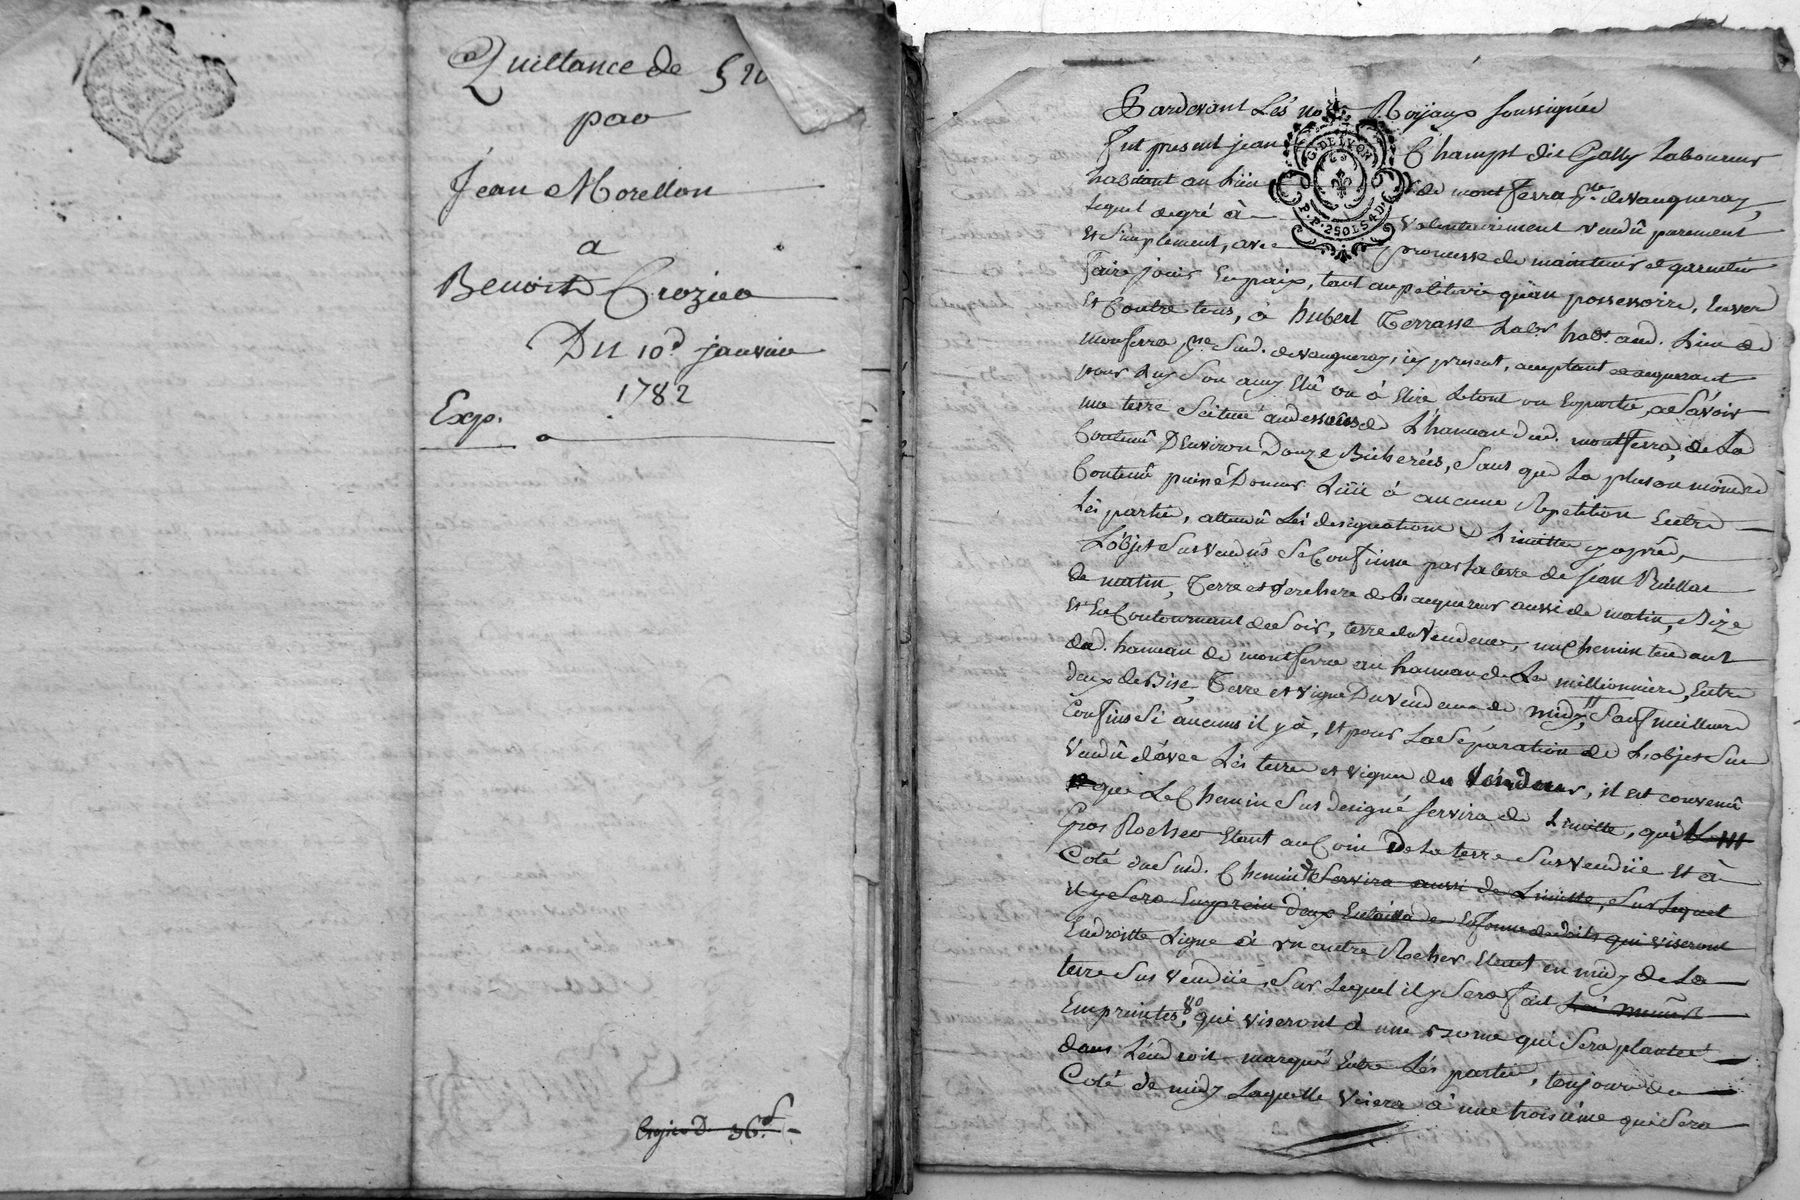 Quittance de 520
par
Jean Morellon
a
Benoist Crozier
Du 10e janvier
1782
Exp.
G. DE LYON
P.P. 250LS4D.
Pardevant Les no Royaux soussignés
fut present jean Champt dit Gally Laboureur
habitant au Lieu de montferra psse de vaugneray,
Lequel de gré à volontairement vendû purement
et simplement, avec promesse de maintenir et garantir
faire jouir En paix, tant au petitoire qu'au possessoire, Envers
et Contre tous, à hubert Terrasse Labr habt aud. Lieu de
monferra psse Sud. de vaugneray, icy present, acceptant et acquerant
pour Luy Son amy Elû ou à Elire Le tout ou En partie, a Sçavoir
une terre Scituée au dessous de L'hameau dud. montferra, de La
Contenûe D'Environ Douze Bicherées, Sans que La plus ou moindre
Contenûe puisse Donner Lieu à aucune Repetition Entre
Les parties, attendû Les designations et Limittes exprès,
L'objet Sus vendûs Se Confinne par La terre de Jean
de matin, Terre et verchere de L'acquereur aussi de matin, Bize
et En Contournant de Soir, terre du vendeur, un Chemin tendant
dud. hameau de montferra au hameau de La millionniere, Entre
deux de Bise, Terre et vigne Du vendeur de midy, Sauf meilleurs
Confins Si aucuns il y à, et pour La Séparation de L'objet Sus
vendû d'avec Les terre et vigne du vendeur, il est convenû
que Le Chemin Sus designé Servira de Limitte, qu'un
Gros Rocher Etant au Coin De La terre Sus vendüe et à
Coté du Sud. Chemin Servira aussi de Limitte, Sur Lequel
il y Sera Emprein deux Entailles En forme de doits qui viseront
En droitte Ligne à un autre Rocher Etant en midy de La
terre Sus vendüe, Sur Lequel il y Sera fait Les mêmes
Empreintes, qui viseront à une Borne qui Sera plantée
dans L'endroit marqué Entre Les parties, toujours du
Coté de midy Laquelle visera à une troisième qui Sera